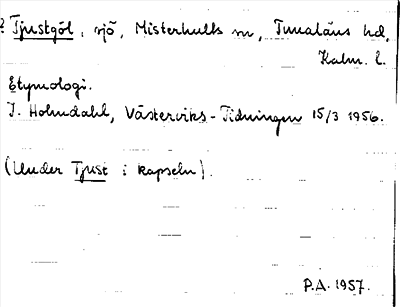 ? Tjustgöl, sjö, Misterhults sn, Tunaläns hd,
Kalm. l.
Etymologi.
I. Holmdahl, Västerviks-Tidningen 15/3 1956.
(Under Tjust i kapseln).
P.A. 1957.